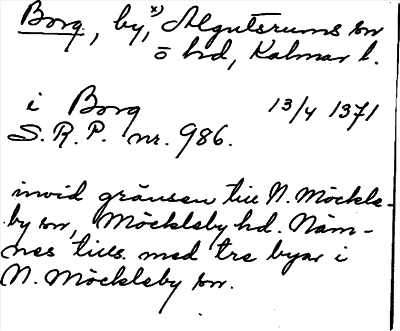 Borg, by, x) Algutsrums sn
ö hd, Kalmar l.
i Borg 13/4 1371
S.R.P. nr. 986.
invid gränsen till N. Möckle-
by sn, Möckleby hd. Näm-
nes tills. med tre byar i
N. Möckleby sn.